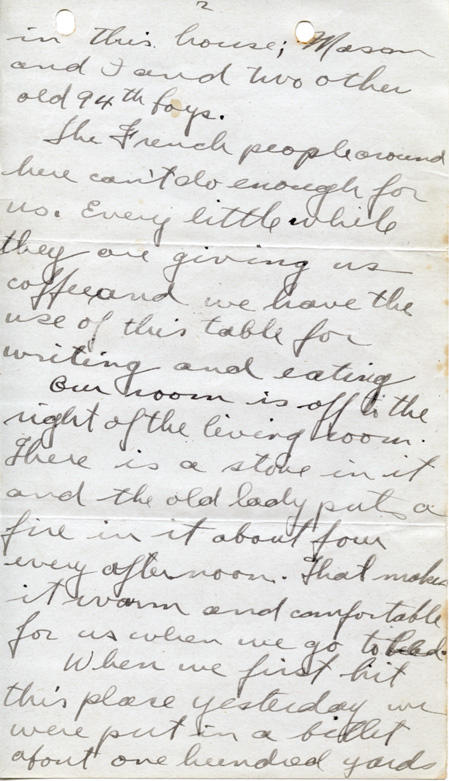 2
in this house; Mason
and I and two other
old 94th boys.
The French people around
here can't do enough for
us. Every little while
they are giving us
coffee and we have the
use of this table for
writing and eating
Our room is off to the
right of the living room.
There is a stove in it
and the old lady puts a
fire in it about four
every afternoon. That makes
it warm and comfortable
for us when we go to bed.
When we first hit
this place yesterday we
were put in a billet
about one hundred yards